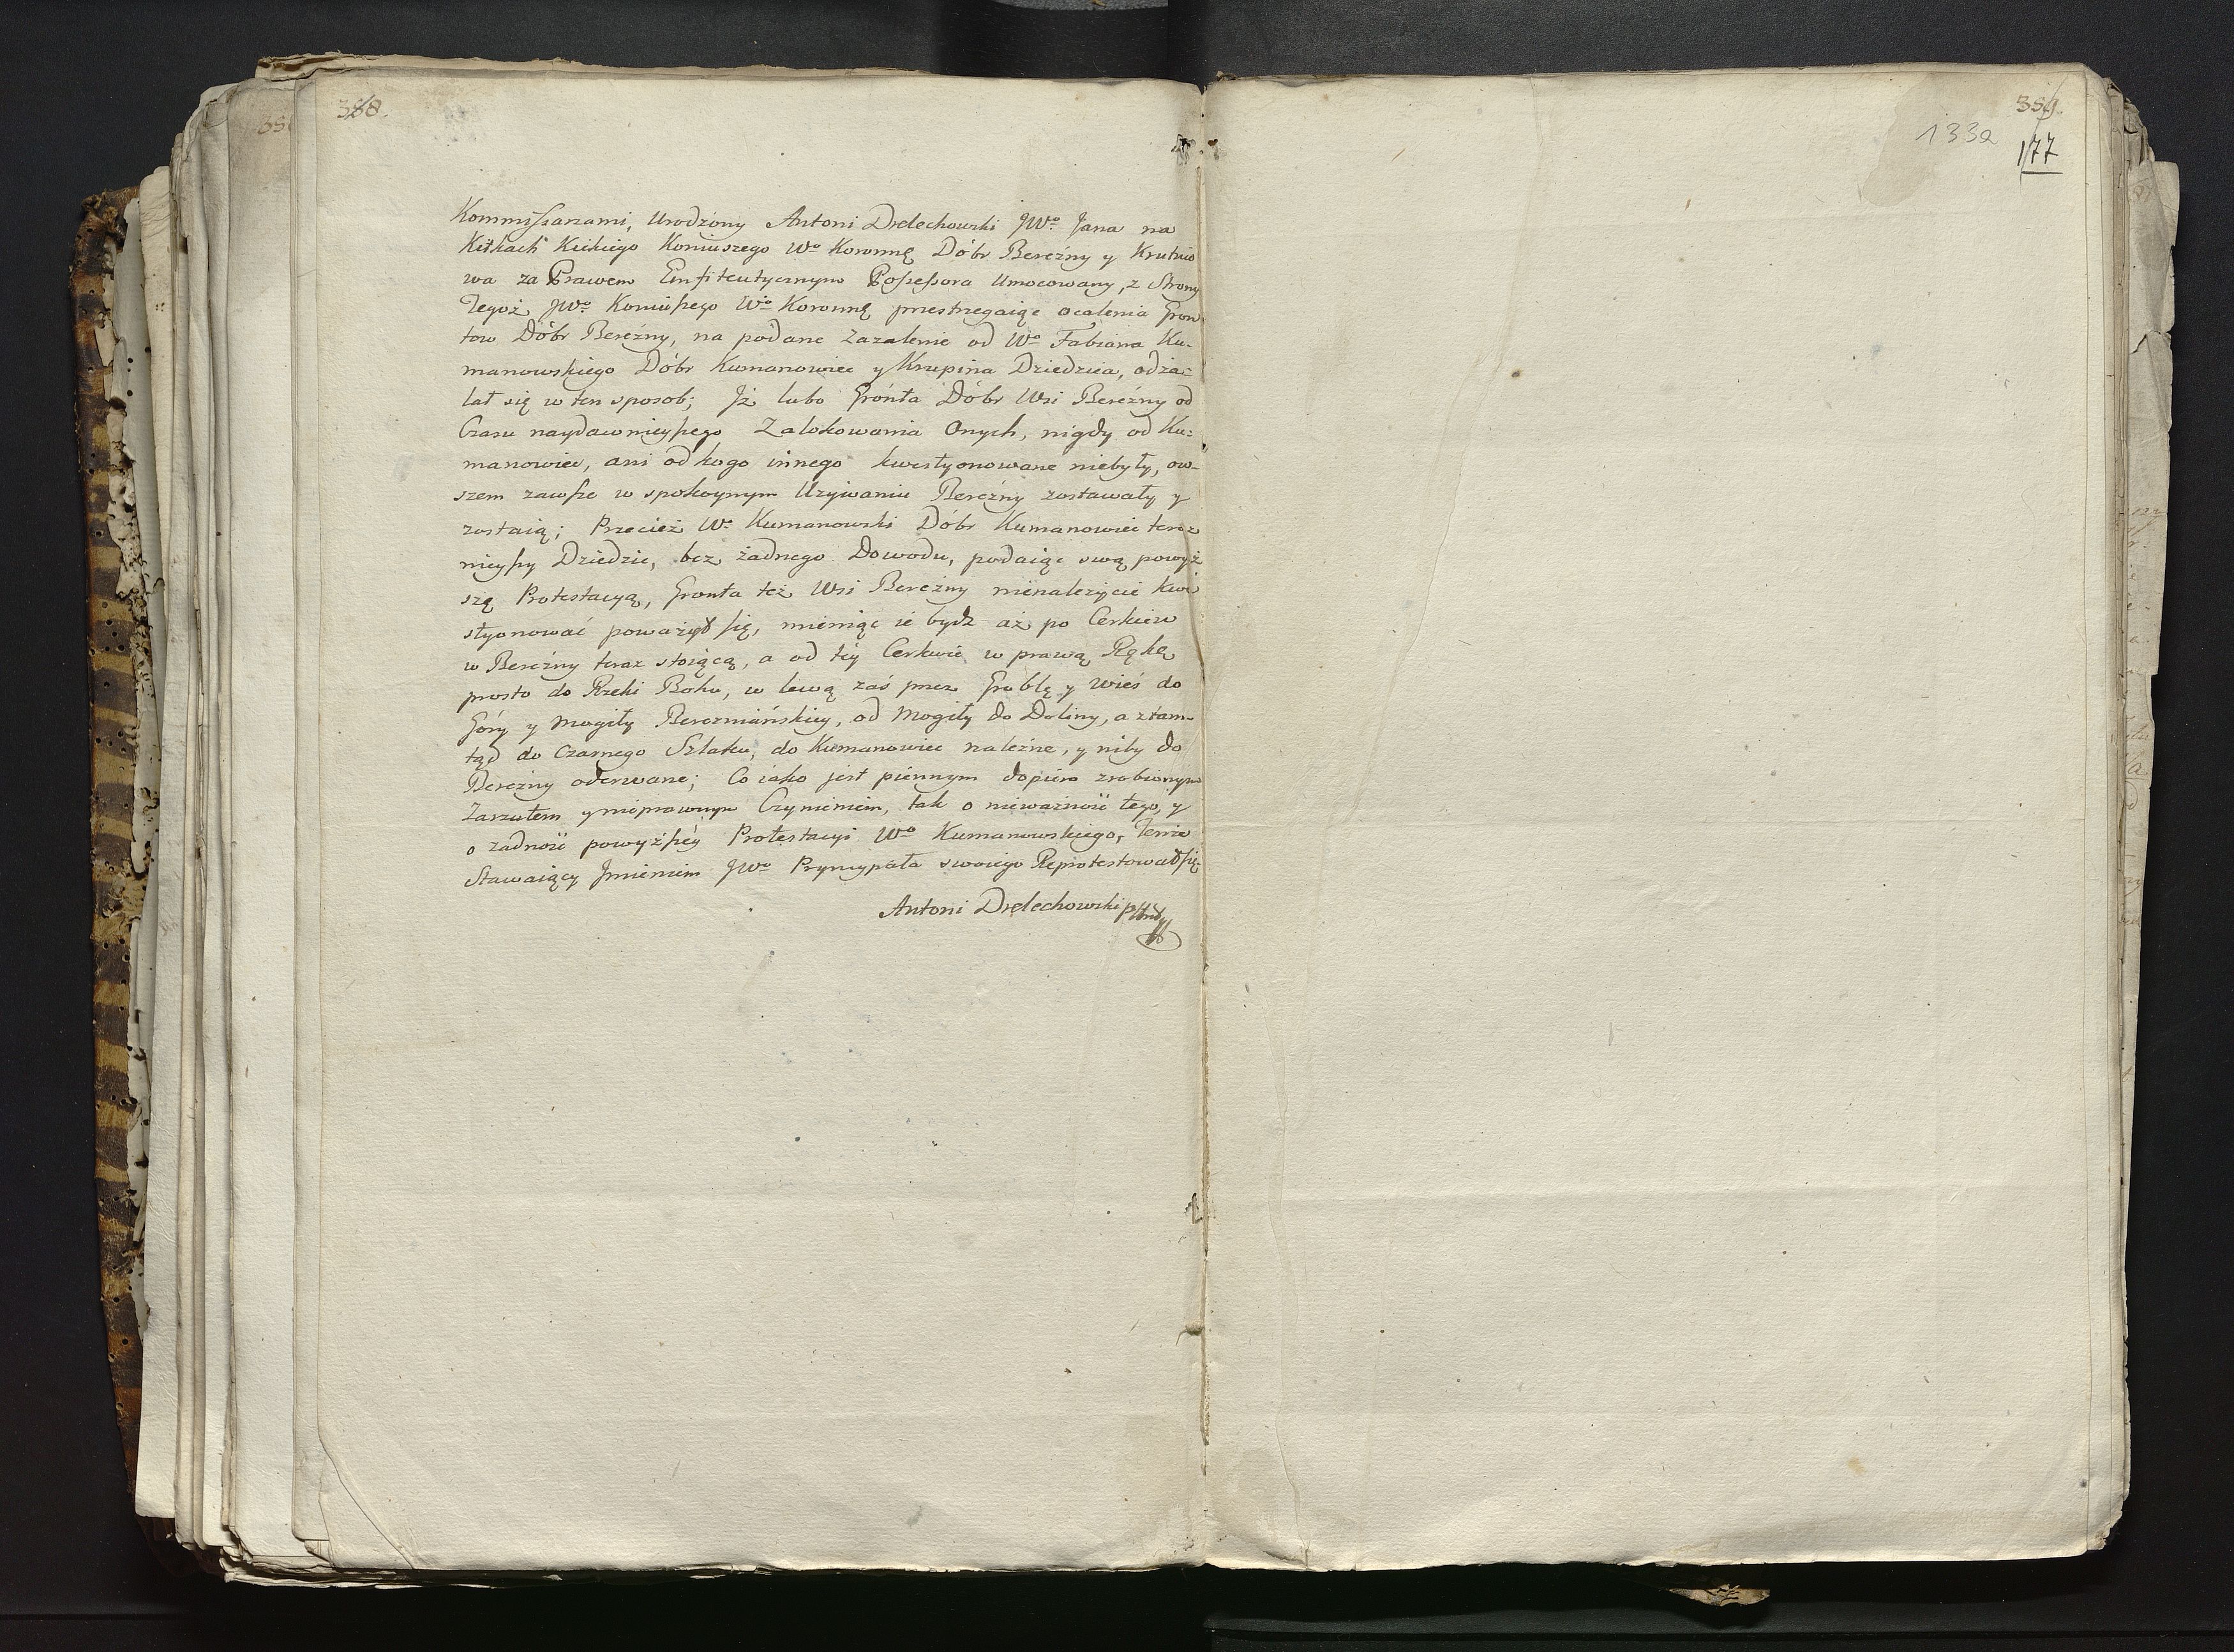 388.
Kommissarzami, Urodzony Antoni Drelechowski JWo. Jana na
Kitkach Kickiego Koniuszego Wo Koronnę Dóbr Bereźny y Krutnio
wa za Prawem Emfiteutycznym Possessora Umocowany, z Strony
Tegoż JWo. Koniuszego Wo Koronnę przestrzegaiąc ocalenia Gron
tow Dóbr Bereźny, na podane Zazalenie od Wo Fabiana Ku-
manowskiego Dóbr Kumanowiec y Krupina Dziedzica, odża:
lał się w ten sposob; Jż lubo Grónta Dóbr Wsi Bereźny od
Czasu naydawnieyszego Zalokowania Onych, nigdy od Ku:
manowiec, ani od kogo innego kwestyonowane niebyły, ow-
szem zawsze w spokoynym Uzywaniu Bereźny zostawały y
zostaią; Przecież Wo Kumanowski Dóbr Kumanowiec teraz
nieyszy Dziedzic, bez żadnego Dowodu, podaiąc swą powyż
szą Protestacyą, Gronta też Wsi Bereźny nienależycie kwe
styonować poważył się, mieniąc ie bydz aż po Cerkiew
w Bereźny teraz stoiącą, a od tey Cerkwie w prawą Rękę
prosto do Rzeki Bohu, w lewą zaś przez Groblę y Wieś do
Góry y Mogiły Berezniańskiey, od Mogiły do Doliny, a ztam-
tąd do Czarnego Szlaku, do Kumanowiec należne, y niby do
Bereźny oderwane; Co iako jest piennym dopiero zrobionym
Zarzutem y nieprawnym Czynieniem, tak o nieważność tego, y
o żadność powyższey Protestacyi Wo Kumanowskiego, Tenże
Stawaiący Jmieniem JWo Pryncypała swoiego Reprotestował się.
Antoni Drelechowski
389.
1332
177